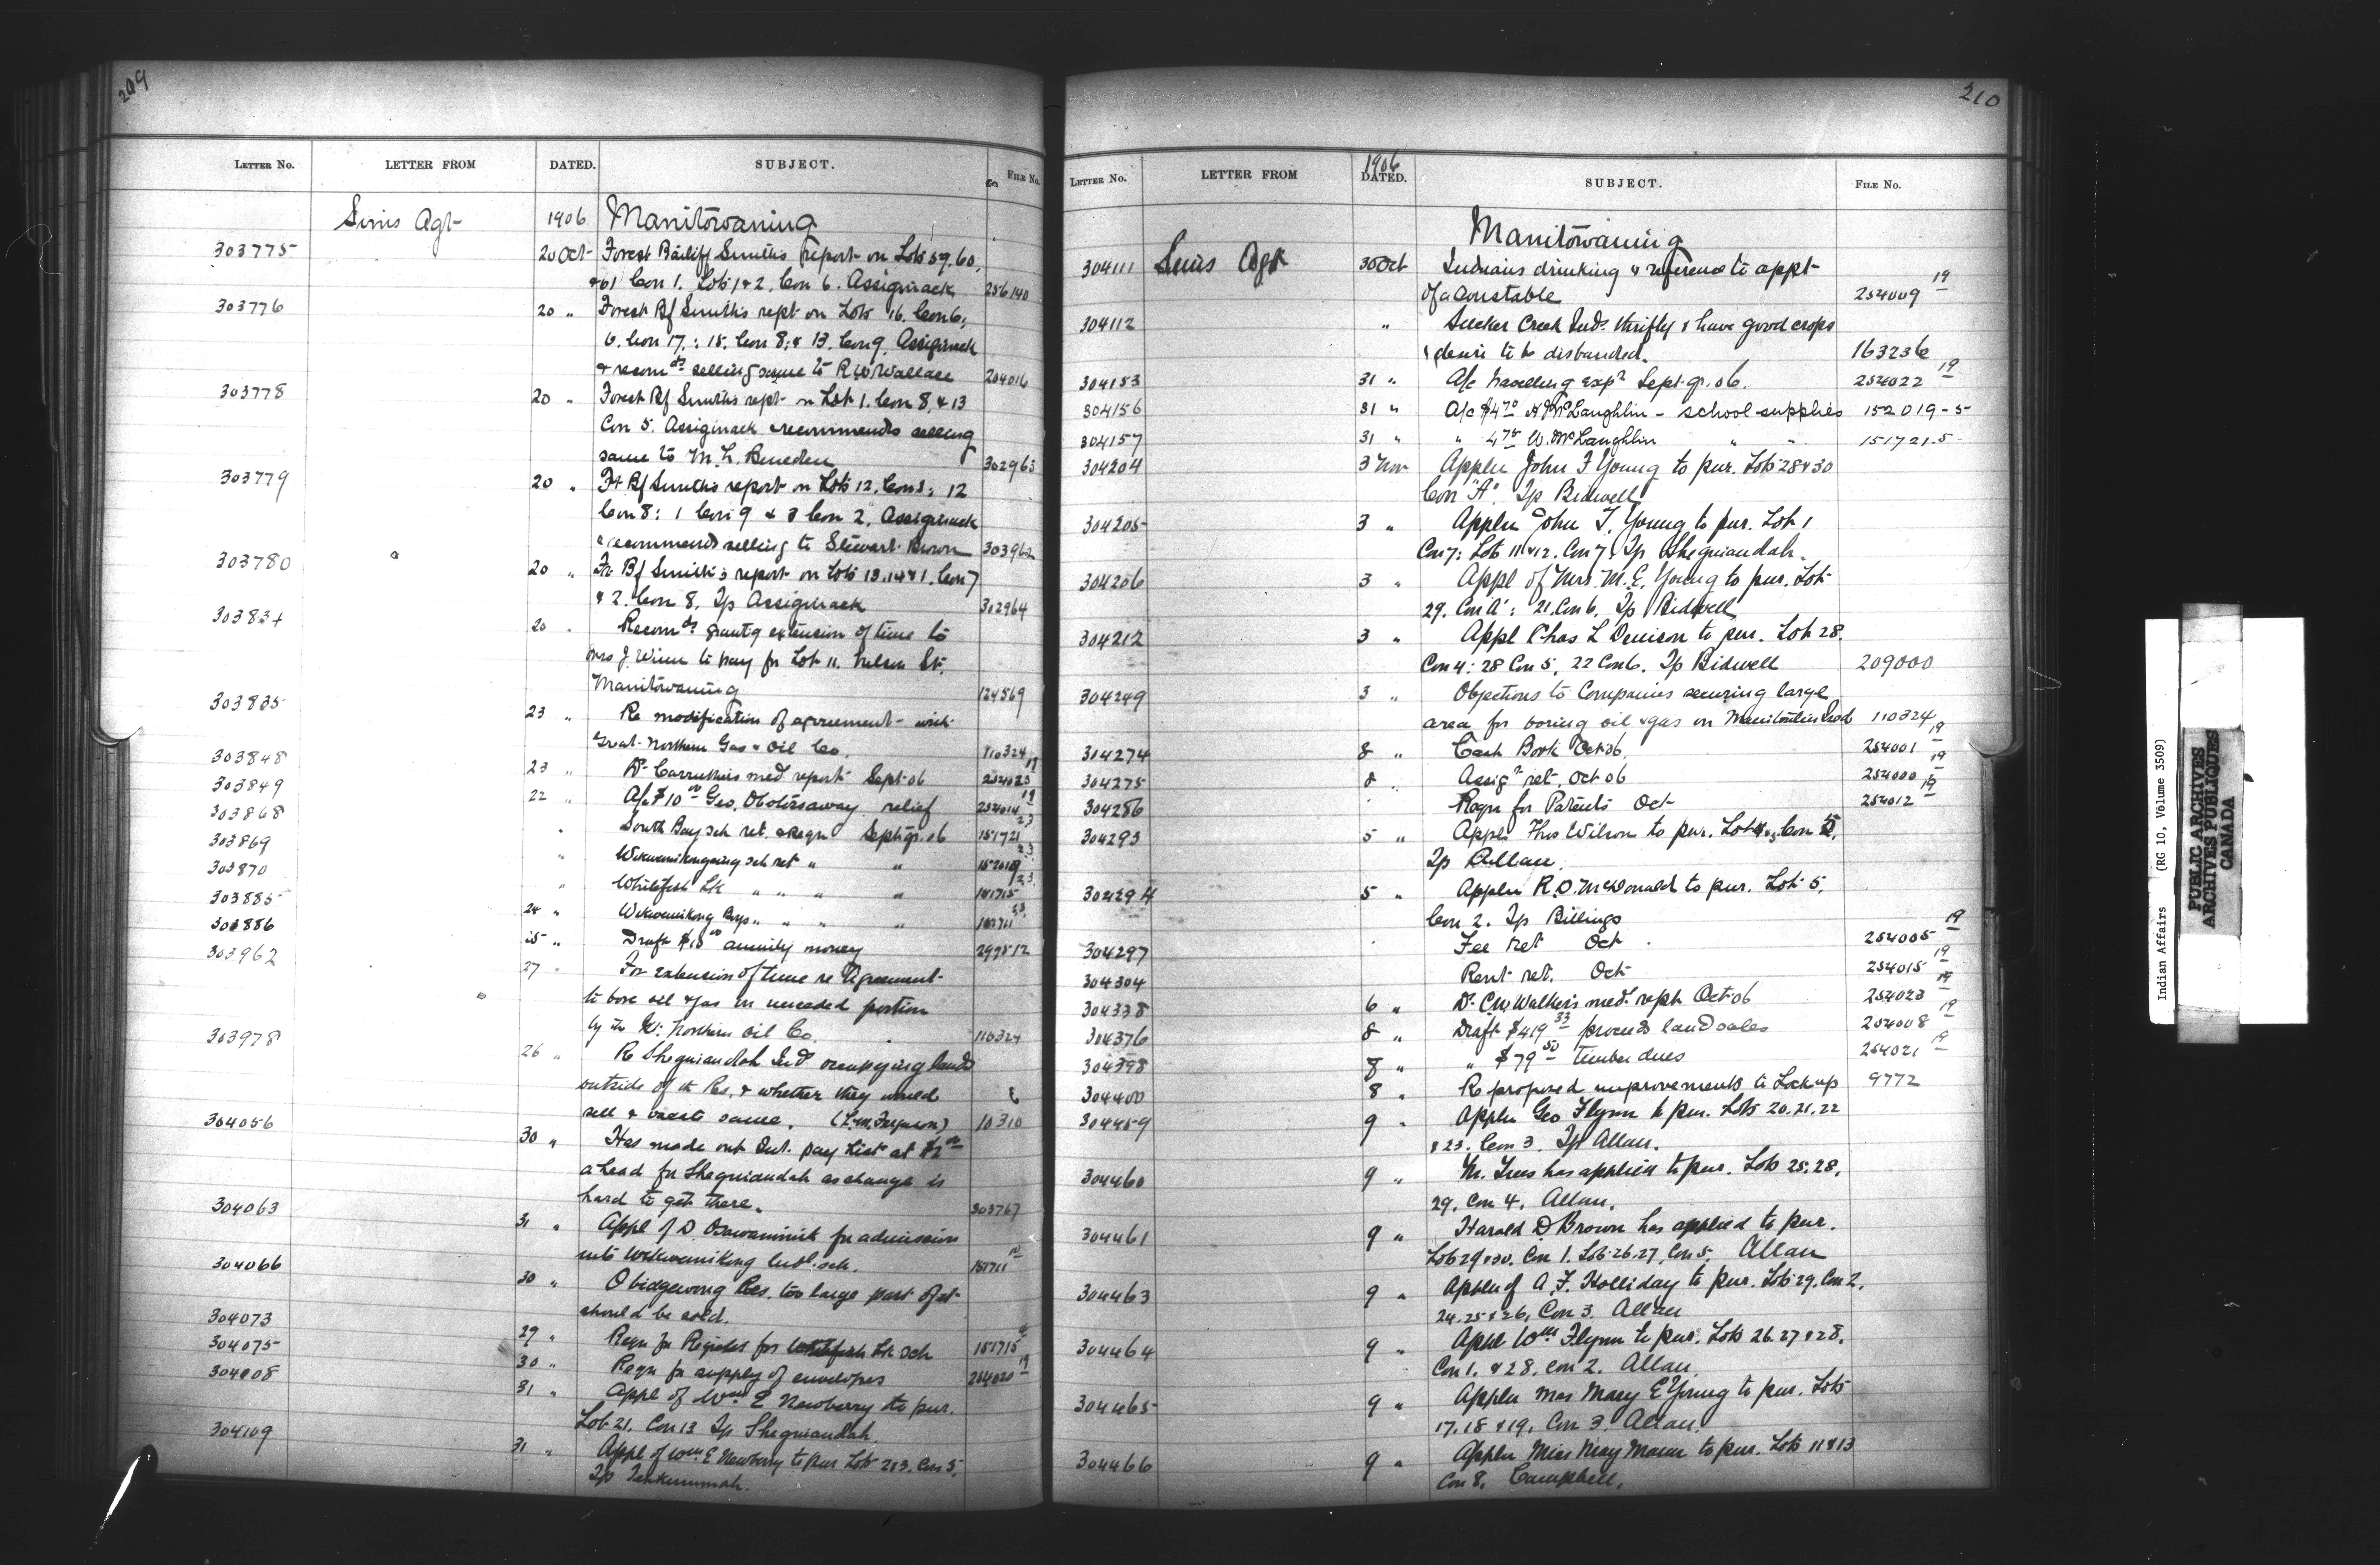 209
LETTER NO. LETTER FROM DATED. SUBJECT. FILE NO.
Sims Agt 1906 Manitowaning
303775 20 Oct Forest Bailiff Smith's report on Lots 59. 60,
& 61 Con 1. Lots 1 & 2, Con 6. Assiginack 256140
303776 20 " Forest Bf Smith's rept on Lots 16. Con 6,
6. Con 17. : 15. Con 8; & 13. Con 9. Assiginack
& recomds selling same to R W Wallace 204016
303778 20 " Forest Bf Smith's rept on Lot 1. Con 8, & 13
Con 5. Assiginack recommends selling
same to M. L. 302963
303779 20 " Ft Bf Smith's report on Lots 12. Con 12
Con 8 : 1 Con 9 & 3 Con 2, Assiginack
recommends selling to Stewart Brown 303962
303780 20 " Fr Bf Smith's report on Lots 13. 14 & 1. Con 7
& 2. Con 8. Tp Assiginack 302964
303834 20 " Recomds grantg extension of time to
Mrs J. Winn to pay for Lot 11. Nelson St.
Manitowaning 124569
303835 23 " Re modification of agreement with
Great Northern Gas & Oil Co. 110324
303848 23 " Dr Carruthers med report Sept 06 254023 19
303849 22 " A/c $10 00 Geo. relief 254014 19
303868 " South Bay sch ret. & Reqn Sept qr. 06 151721 23
303869 " Wikwemikongsing sch ret " " 23
303870 " Whitefish Lk " " " " 151715 23
303885 24 " Wikwemikong Boys " " " " 23
303886 25 " Draft $18 00 annuity money 299512
303962 27 " For extension of time re Agreement
to bore oil & gas in unceded portion
by the Gt. Northern Oil Co. 110324
303978 26 " Re Sheguiandah Inds occupying land
outside of the Res. & whether they would
sell & vacate same. (L. M. Ferguson) 10310
304056 30 " Has made out Int. pay list at
a head for Sheguiandah as change is
hard to get there. 303767
304063 31 " Appl of D for admission
into Wikwemikong Indl. sch. 151711
304066 30 " Obidgewong Res. too large part of it
should be sold.
304073 29 " Reqn for Register for Whitefish Lk sch 151715
304075 30 " Reqn for supply of envelopes 254020 19
304108 31 " Appl of Wm E Newberry to pur.
Lot 21. Con 13 Tp Sheguiandah.
304109 31 " Appl of Wm E Newberry to pur Lots 2 & 3. Con 5,
Tp Tehkummah.
210
LETTER NO. LETTER FROM 1906 DATED. SUBJECT. FILE NO.
Manitowaning
304111 Sims Agt 30 Oct Indians drinking & reference to appt
of a Constable 254009 19
304112 " Sucker Creek Inds. thrifty & have good crops
& desire to be disbanded. 163236
304153 31 " A/c travelling exps Sept. qr. 06. 254022 19
304156 31 " A/c $4 70 McLaughlin - school supplies 152019-5
304157 31 " " 4 75 W. McLaughlin " " 151721.5
304204 3 Nov Appln John F Young to pur. Lots 28 & 30
Con "A". Tp Bidwell
304205 3 " Appln John F. Young to pur. Lot 1
Con 7: Lots 11 & 12. Con 7. Tp Sheguiandah.
304206 3 " Appl of Mrs. M. E. Young to pur. Lot
29. Con A : 21. Con 6, Tp Bidwell
304212 3 " Appl Chas L Denison to pur. Lot 28.
Con 4 : 28 Con 5, 22 Con 6. Tp Bidwell 209000
304249 3 " Objections to Companies securing large
area for boring oil & gas on Manitoulin Isld 110324
304274 8 " Cash Book Oct 06. 254001 19
304275 8 " Assigt ret. Oct 06 254000 19
304286 Reqn for Patents Oct 254012 19
304293 5 " Appl Thos Wilson to pur. Lot Con
Tp Allan.
304294 5 " Appln R. D. McDonald to pur. Lot 5,
Con 2. Tp Billings
304297 Fee ret Oct 254005 19
304304 Rent ret. Oct 254015 19
304338 6 " Dr. C. W. Walker's med. rept Oct 06 254023 19
304376 8 " Draft $419 33 proceeds land sales 254008 19
304398 8 " " $79 50 timber dues 254021 19
304400 8 " Re proposed improvements to Lockup 9772
304459 9 " Appln Geo Flynn to pur. Lots 20. 21. 22
& 23. Con 3. Tp Allan.
304460 9 " M. has applied to pur. Lots 25. 28.
29. Con 4. Allan.
304461 9 " Harold D Brown has applied to pur.
Lots 29 & 30. Con 1. Lots 26. 27. Con 5. Allan
304463 9 " Appln of A. F. Holliday to pur. Lots 29. Con 2.
24. 25 & 26, Con 3. Allan
304464 9 " Appl Wm Flynn to pur. Lots 26. 27 & 28.
Con 1. & 28. Con 2. Allan
304465 9 " Appln Mrs Mary E Young to pur. Lots
17. 18 & 19. Con 3. Allan.
304466 9 " Appln Miss May to pur. Lots 11 & 13
Con 8. Campbell.
Indian Affairs (RG 10, Volume 3509)
PUBLIC ARCHIVES
ARCHIVES PUBLIQUES
CANADA